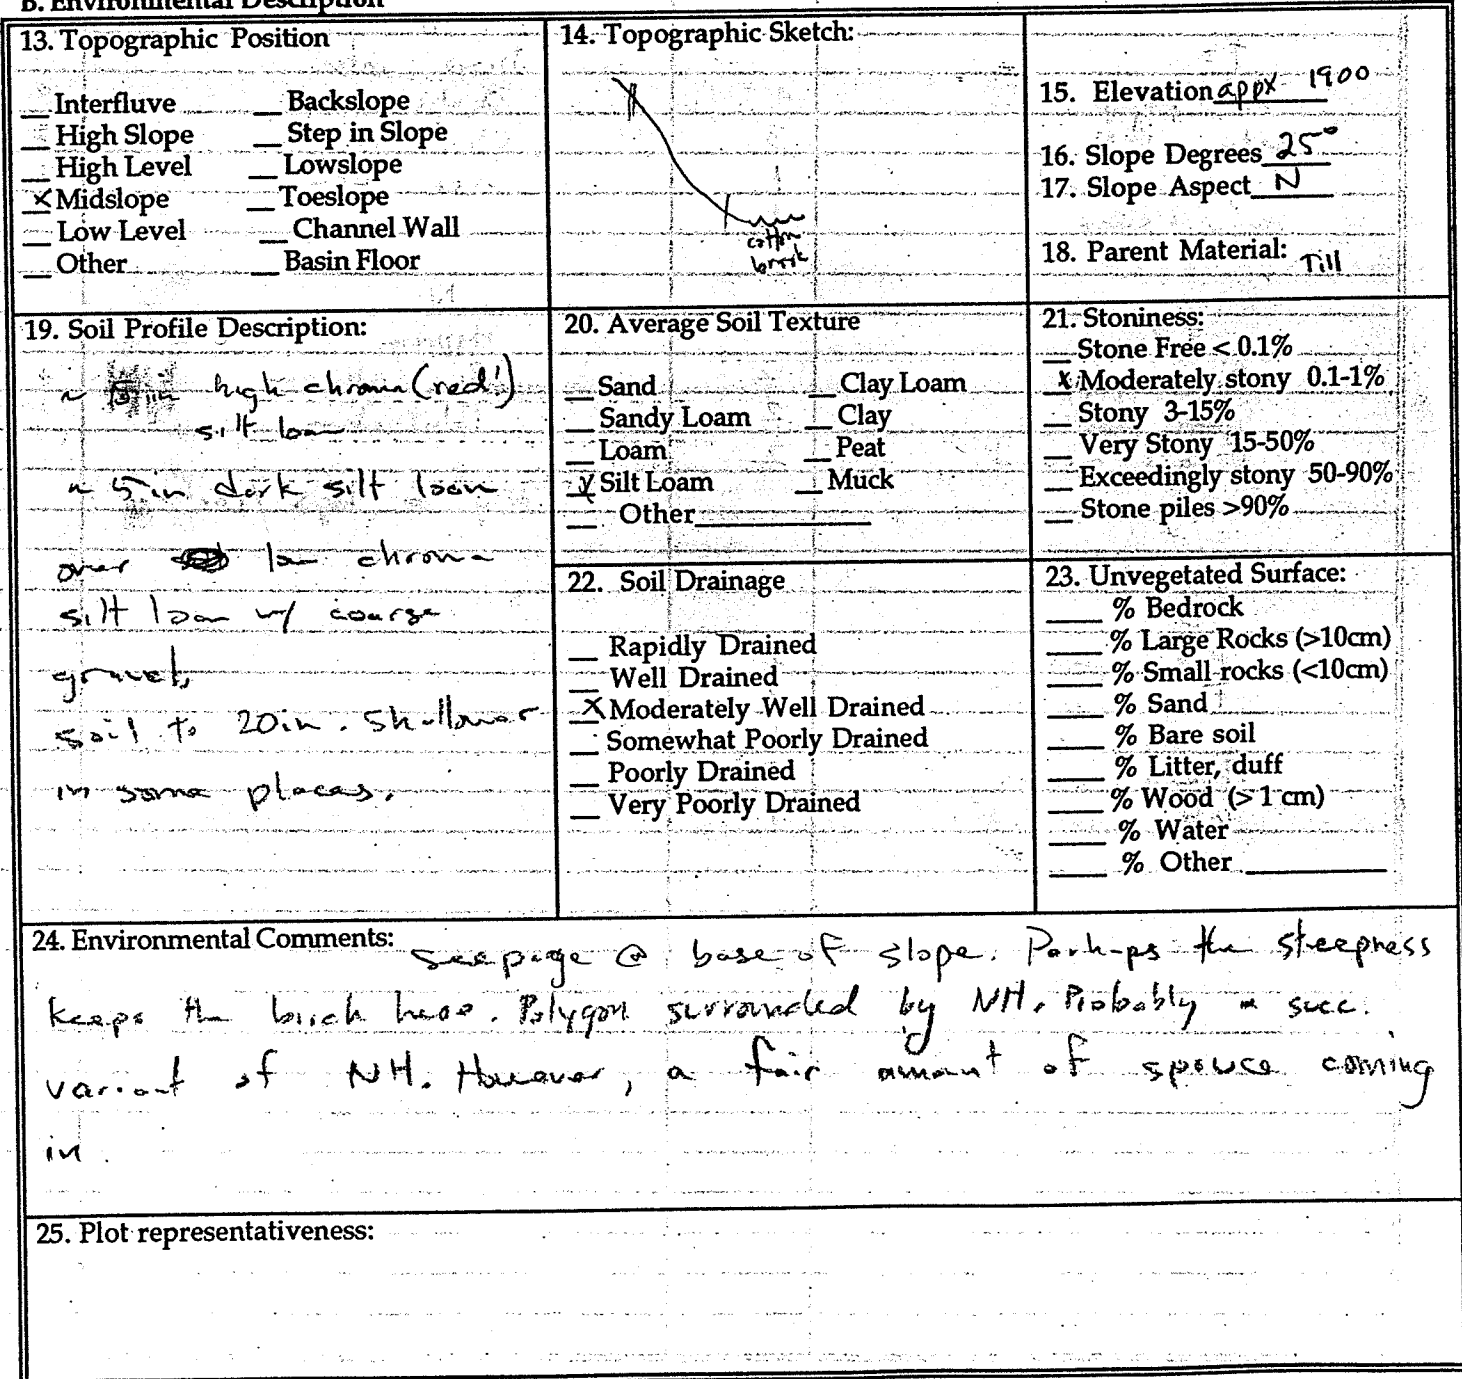 B. Environmental Description
13. Topographic Position
__ Interfluve __ Backslope
__ High Slope __ Step in Slope
__ High Level __ Lowslope
X Midslope __ Toeslope
__ Low Level __ Channel Wall
__ Other __ Basin Floor
14. Topographic Sketch:
cotton
brook
15. Elevation appx 1900
16. Slope Degrees 25°
17. Slope Aspect N
18. Parent Material: Till
19. Soil Profile Description:
~ high chroma (red!)
silt loam
~ 5 in dark silt loam
over low chroma
silt loam w/ coarse
gravel,
soil to 20in. Shallower
in some places.
20. Average Soil Texture
__ Sand __ Clay Loam
__ Sandy Loam __ Clay
__ Loam __ Peat
X Silt Loam __ Muck
__ Other
21. Stoniness:
__ Stone Free < 0.1%
X Moderately stony 0.1-1%
__ Stony 3-15%
__ Very Stony 15-50%
__ Exceedingly stony 50-90%
__ Stone piles >90%
22. Soil Drainage
__ Rapidly Drained
__ Well Drained
X Moderately Well Drained
__ Somewhat Poorly Drained
__ Poorly Drained
__ Very Poorly Drained
23. Unvegetated Surface:
____ % Bedrock
____ % Large Rocks (>10cm)
____ % Small rocks (<10cm)
____ % Sand
____ % Bare soil
____ % Litter, duff
____ % Wood (> 1 cm)
____ % Water
____ % Other
24. Environmental Comments: Seepage @ base of slope. Perhaps the steepness
keeps the birch here. Polygon surrounded by NH. Probably a succ.
variant of NH. However, a fair amount of spruce coming
in.
25. Plot representativeness: